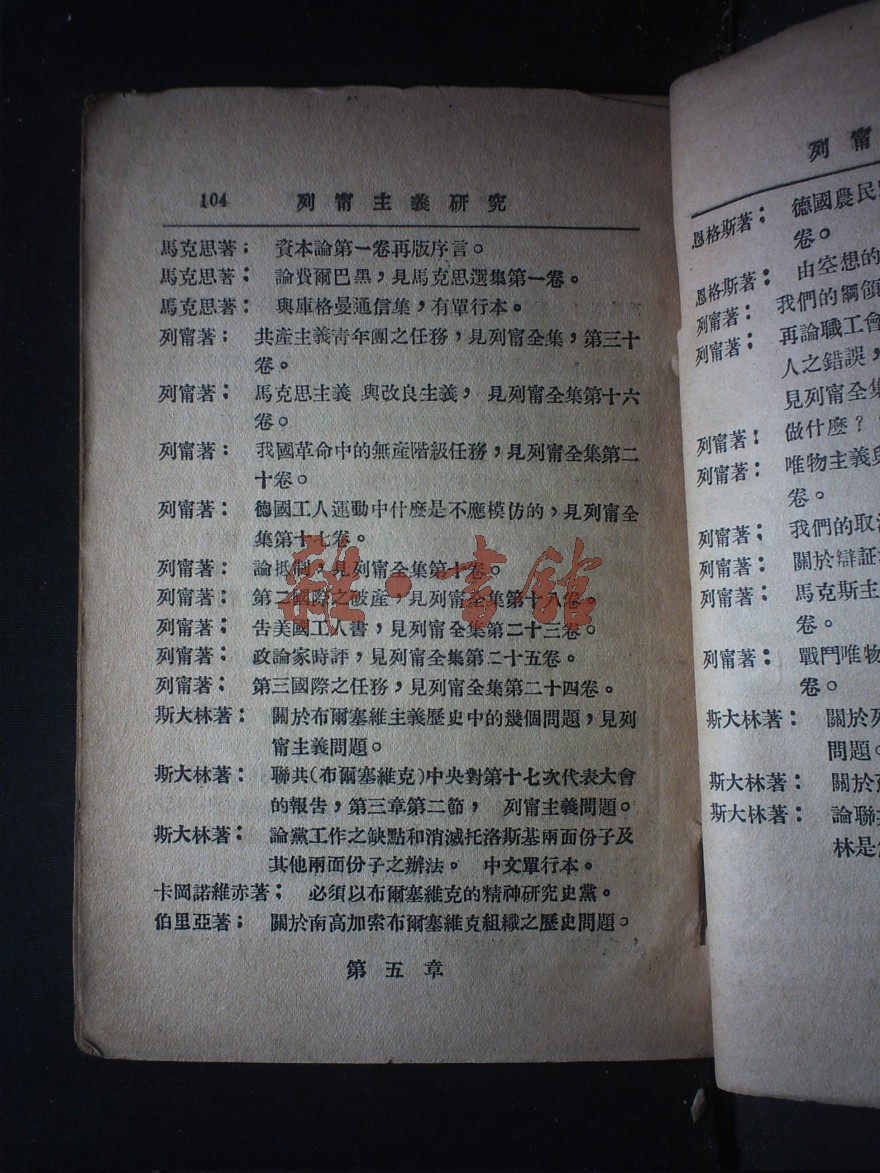 104 列甯主義研究
馬克思著； 資本論第一卷再版序言。
馬克思著： 論費爾巴黑，見馬克思選集第一卷。
馬克思著： 與庫格曼通信集，有單行本。
列甯著； 共產主義青年團之任務，見列甯全集，第三十
卷。
列甯著： 馬克思主義 與改良主義， 見列甯全集第十六
卷。
列甯著： 我國革命中的無產階級任務，見列甯全集第二
十卷。
列甯著： 德國工人運動中什麼是不應模仿的，見列甯全
集第十七卷。
列甯著： 論抵制，見列甯全集第十卷。
列甯著： 第二國際之破產，見列甯全集第十八卷。
列甯著： 告美國工人書，見列甯全集第二十三卷。
列甯著： 政論家時評，見列甯全集第二十五卷。
列甯著： 第三國際之任務，見列甯全集第二十四卷。
斯大林著： 關於布爾塞維主義歷史中的幾個問題，見列
甯主義問題。
斯大林著： 聯共(布爾塞維克)中央對第十七次代表大會
的報告，第三章第二節， 列甯主義問題。
斯大林著： 論黨工作之缺點和消滅托洛斯基兩面份子及
其他兩面份子之辦法。 中文單行本。
卡岡諾維赤著； 必須以布爾塞維克的精神研究史黨。
伯里亞著； 關於南高加索布爾塞維克組織之歷史問題。
第五章
雜·書館
列甯
恩格斯著； 德國農民
卷。
恩格斯著： 由空想的
列甯著： 我們的綱領
列甯著： 再論職工會
人之錯誤，
見列甯全集
列甯著： 做什麼？
列甯著： 唯物主義與
卷。
列甯著； 我們的取消
列甯著： 關於辯証
列甯著： 馬克斯主
卷。
列甯著： 戰鬥唯物
卷。
斯大林著： 關於列
問題。
斯大林著： 關於
斯大林著： 論聯共
林是